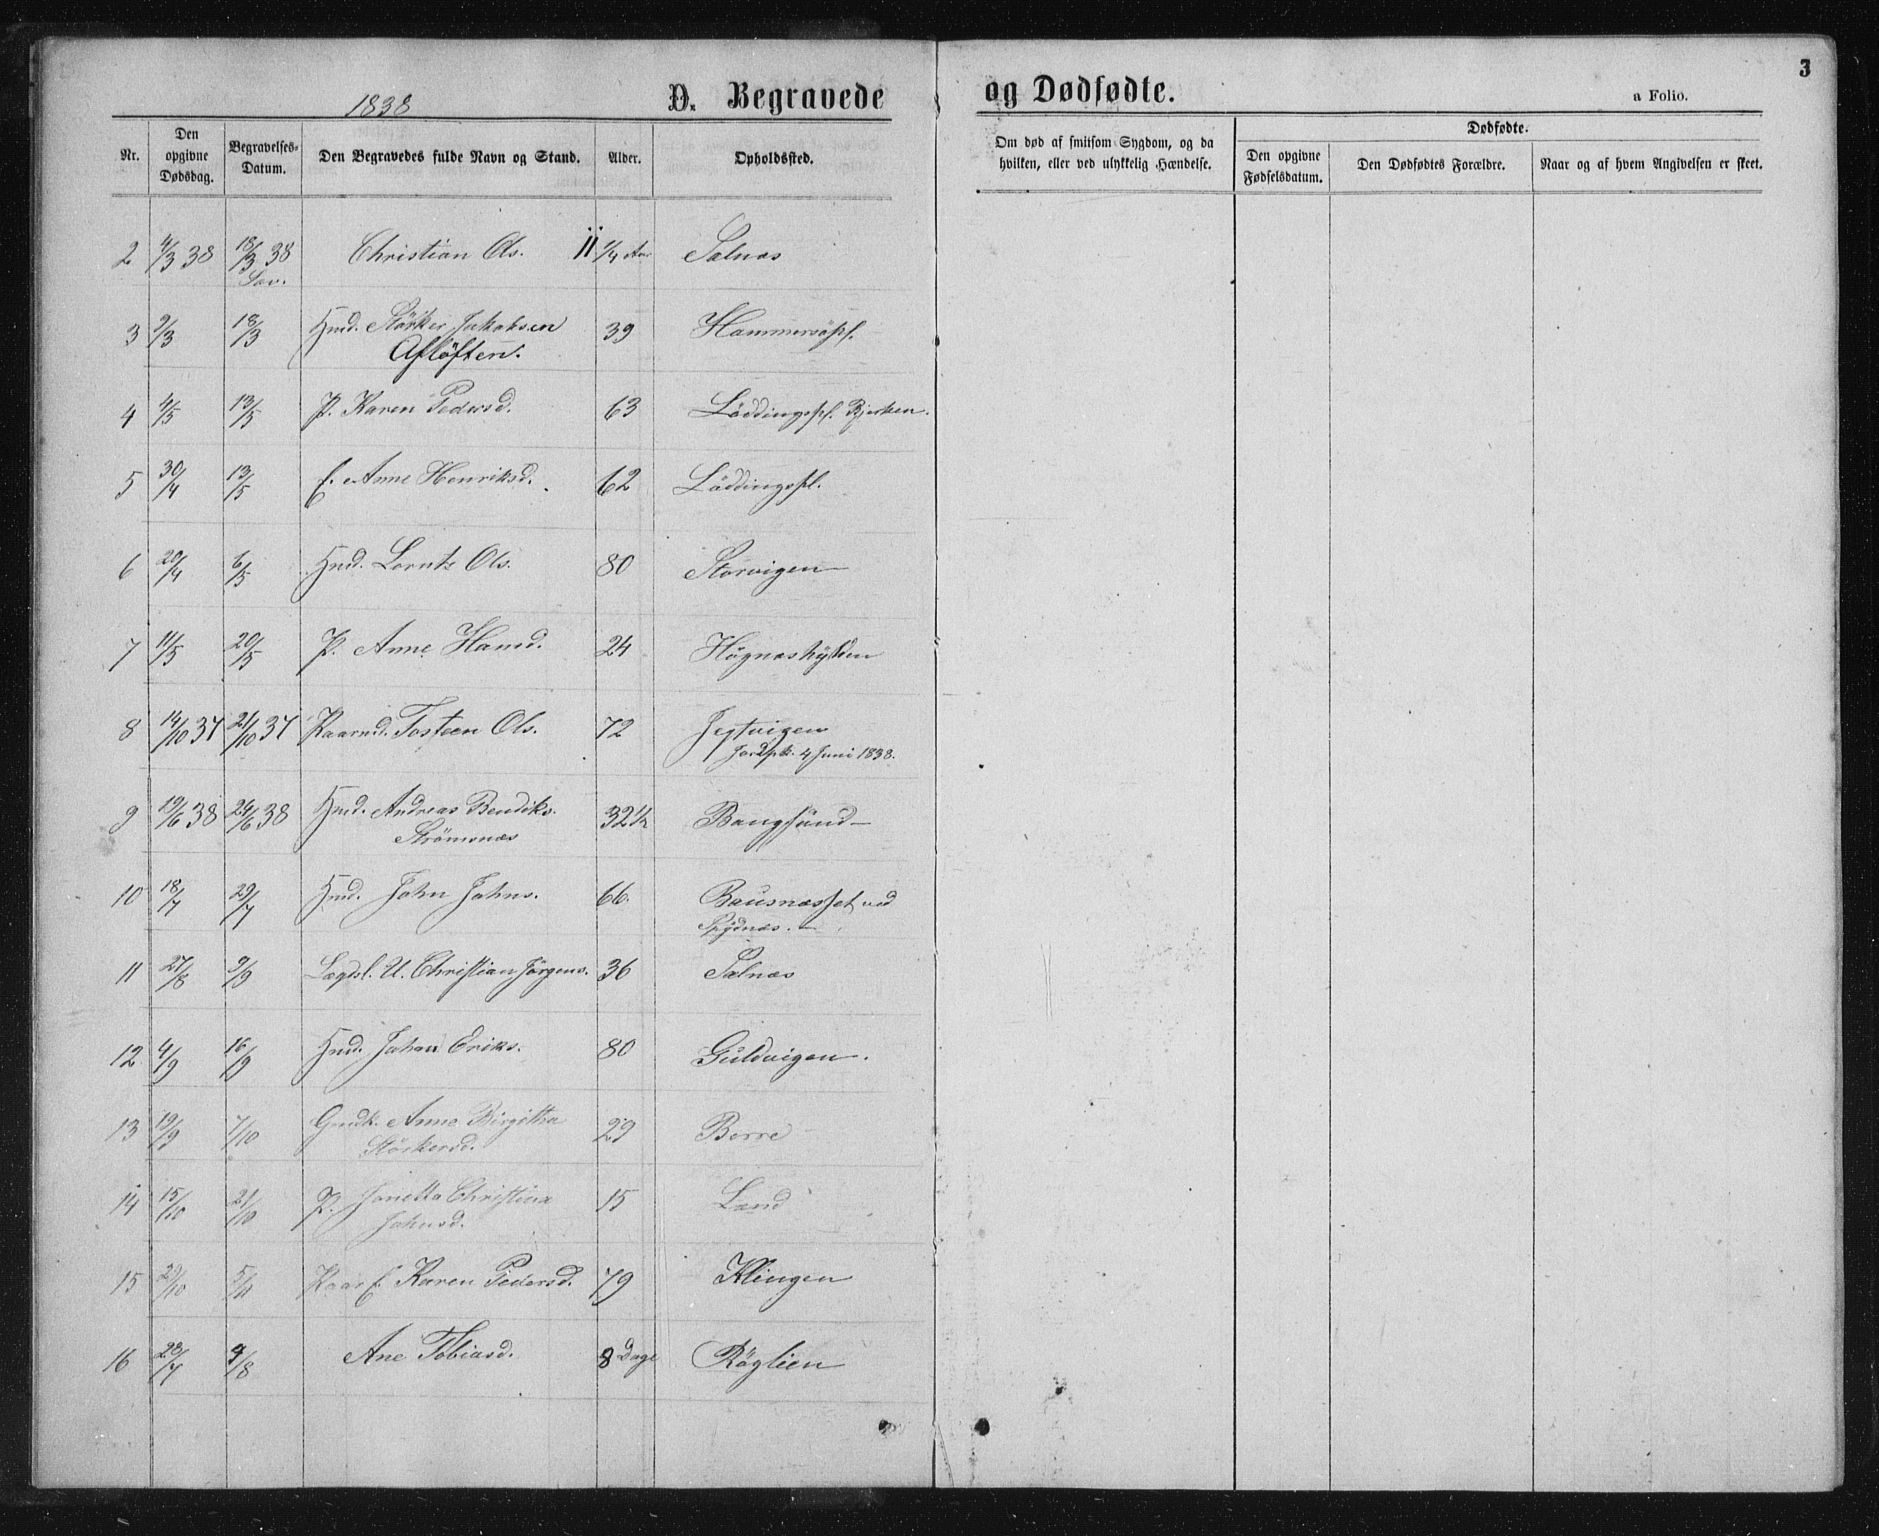 1838
D. Begravede og Dødfødte.
3
a Folio.
Nr.
Den opgivne Dødsdag.
Begravelses-Datum.
Den Begravedes fulde Navn og Stand.
Alder.
Opholdssted.
Om død af smitsom Sygdom, og da hvilken, eller ved ulykkelig Hændelse.
Dødfødte.
Den opgivne Fødselsdatum.
Den Dødfødtes Forældre.
Naar og af hvem Angivelsen er skeet.
2 4/3 38 18/3 38 Christian Ols. 1/4 Aar Salnæs
3 9/3 18/3 Hmd. Störker Jakobsen 39 Hammersöpl.
Aflöften.
4 4/5 13/5 P. Karen Pedersd. 63 Löddingspl. Bjerken.
5 30/4 13/5 E. Anne Henriksd. 62 Löddingspl.
6 20/4 6/5 Hmd. Lorntz Ols. 80 Storvigen
7 11/5 20/5 P. Anne Hansd. 24 Högnæshylden
8 14/10 37 21/10 37 Kaarmd. Tosteen Ols. 72 Jegtvigen
Jordpk. 4 Juni 1838.
9 19/6 38 24/6 38 Hmd. Andreas Bendiks. 32 1/2 Bangsund
Strömsnæs
10 18/7 29/7 Hmd. John Johns. 66. Bausnæsset ved
Spydnæs.
11 27/8 9/9 Lægdsl. U. Christian Jörgens. 36 Salnæs
12 4/9 16/9 Hmd. Johan Eriks. 80 Guldvigen.
13 19/9 7/10 Gmdk. Anne Birgitha 29 Borre
Störkersd.
14 15/10 21/10 P. Jonetta Christina 15 Land
Johnsd.
15 29/10 5/11 Kaar E. Karen Pedersd. 79 Klingen
16 28/7 9/8 Ane Tobiasd. 8 Dage Röglien